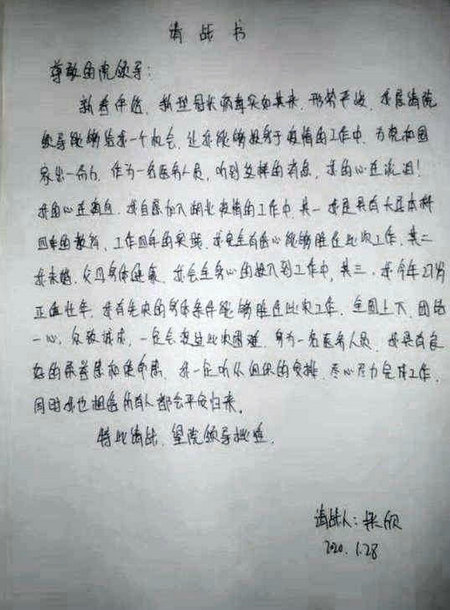 请战书
尊敬的院领导：
新春伊始，新型冠状病毒突如其来，形势严峻，我恳请院
领导能够给我一个机会，让我能够投身于疫情的工作中，为党和国
家出一份力，作为一名医务人员，听到这样的消息，我的心在流泪！
我的心在滴血。我自愿加入湖北疫情的工作中，其一，我是具有大专本科
四年的教育，工作四年的实践，我完全有信心能够胜任此次工作，其二
我未婚，父母身体健康，我会全身心的投入到工作中，其三，我今年27岁
正值壮年，我有足够的身体条件能够胜任此次工作，全国上下，团结
一心，众志成城，一定会渡过此次困难，身为一名医务人员，我具有良
好的职业素养和使命感，我一定听从组织的安排，尽心尽力完成工作，
同时我也相信所有人都会平安归来。
特此请战，望院领导批准。
请战人：张欣
2020.1.28